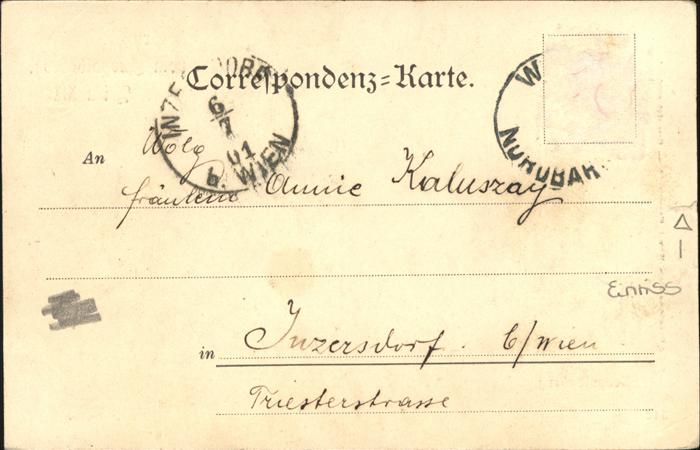 Correspondenz=Karte.
INZE DORF
6/
01
b. WIEN
W
NORDBAH
An
Wolg
fräulein Annie Kaluszay
Einriss
in Inzersdorf. b/Wien
Triesterstrasse